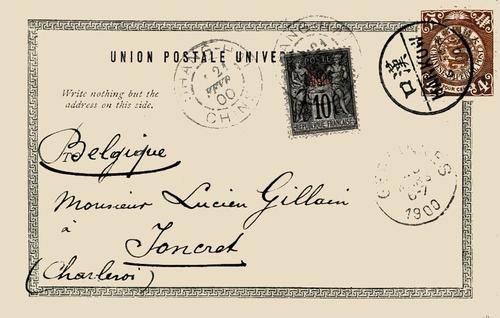 UNION POSTALE UNIVE
Write nothing but the
address on this side.
SHANG-HAI
21
FEVR
00
CHINE
POSTE
10
REPUBLIQUE FRANCAISE
漢口
HANKOW
1900
Belgique
Monsieur Lucien Gillain
à
Joncret
(Charleroi)